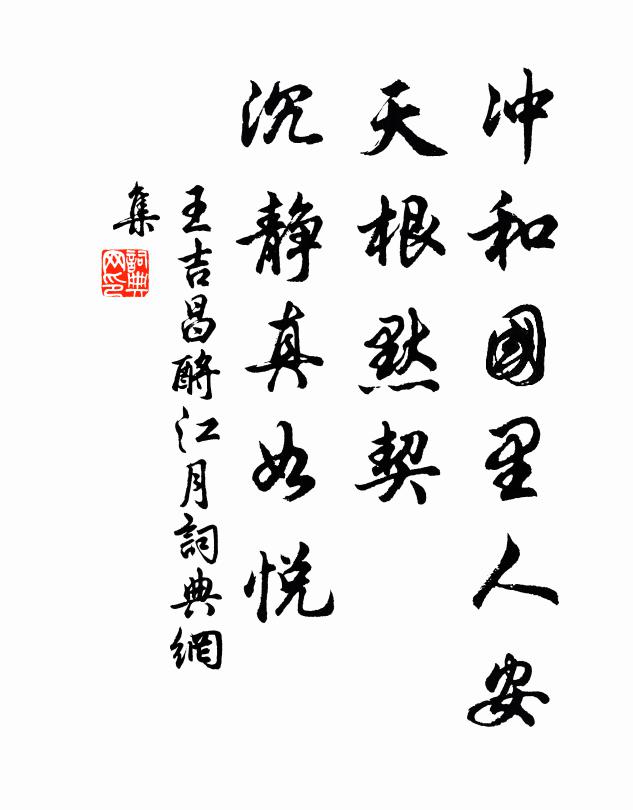 冲和國里人安
天根默契
沉静真如悦
王吉昌酹江月詞典網
集
詞典
网印